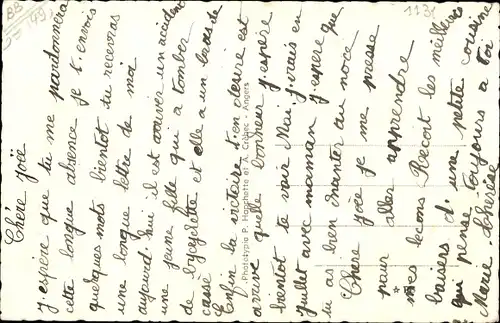 Chère Joëe
j'espère que tu me pardonnera
cette longue absence je t'envois
quelques mots bientot tu recevras
une longue lettre de moi
aujourd'hui il est arrivée un accident
une jeune fille qui a tomber
de bycyclette et elle a un bras de
cassé
Enfin la victoire s'en desire est
arrivé quelle bonheur j'espère
bientot te voir Mai j'irais en
juillet avec maman j'espère que
tu as bien manter au noce
Chere joëe je me presse
pour aller apprendre
mes lecons Recoit les meilleurs
baisers d'une petite cousine
qui pense toujours a toi
Marie-Thérèse
Phototypie P. Hacquette et A. Crêtec - Angers